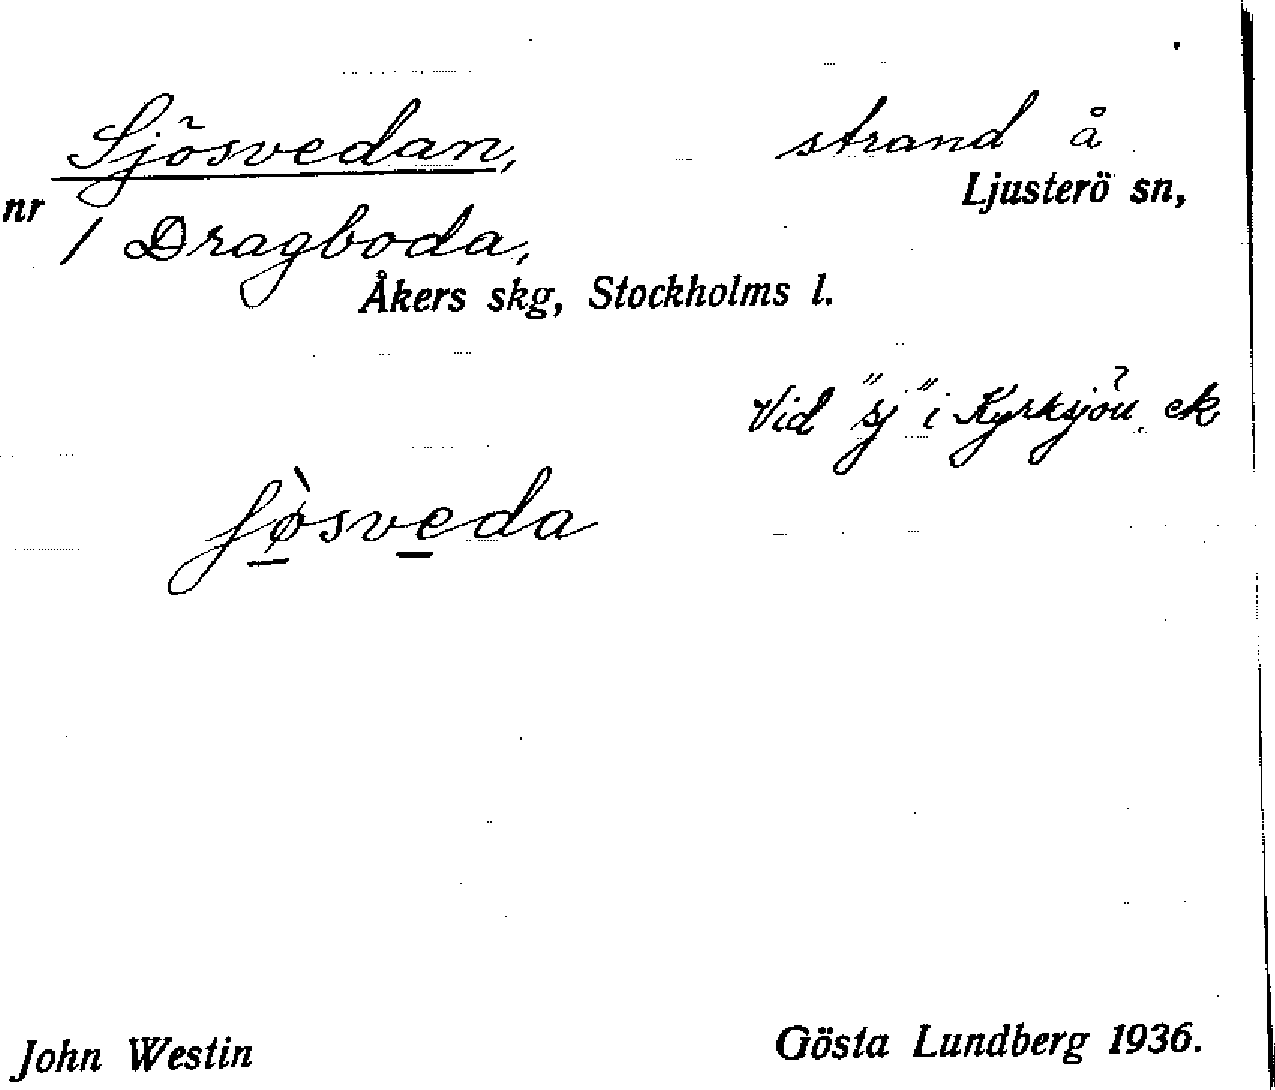 Sjösvedan, strand å
Ljusterö sn,
nr 1 Dragboda,
Åkers skg, Stockholms l.
Vid "sj" i Kyrksjön ek
John Westin
Gösta Lundberg 1936.